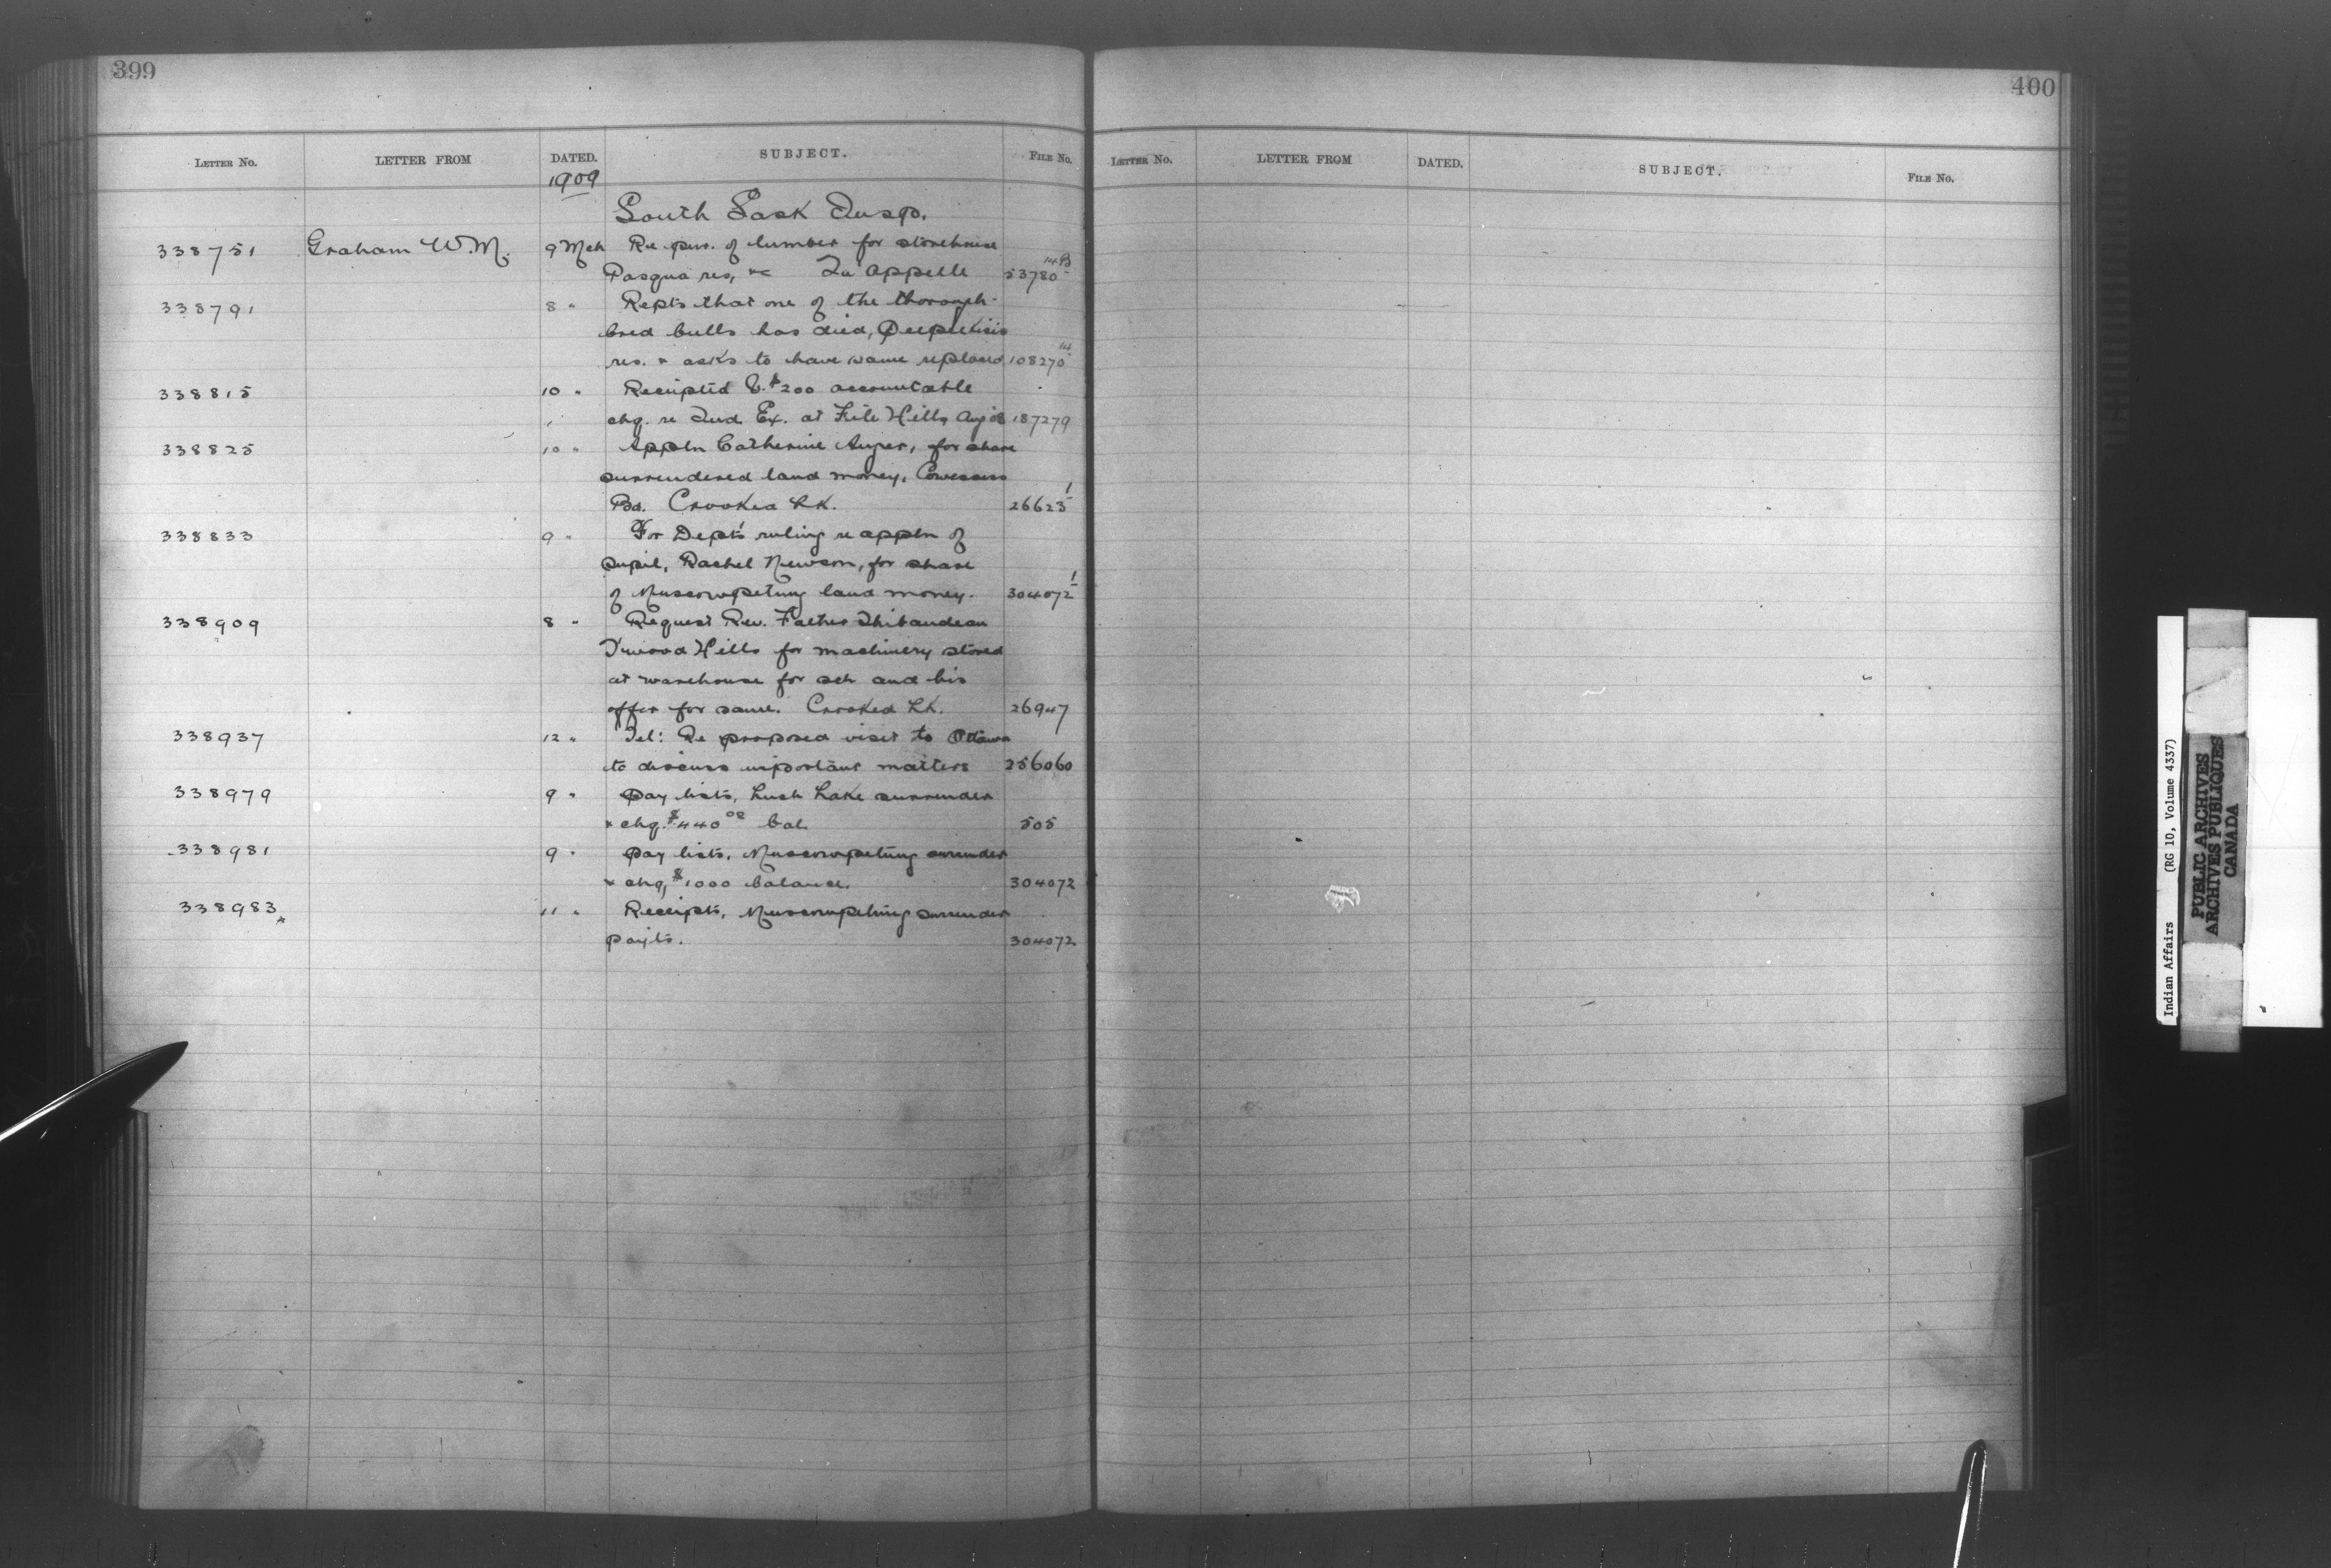 399
LETTER NO. LETTER FROM DATED. SUBJECT. FILE NO.
1909
South Sask Insp.
338751 Graham W.M. 9 Mch Re pur. of lumber for storehouse
Pasqua res, &c Qu'Appelle 53780 14B
338791 8 " Repts that one of the thorough-
bred bulls has died, Peepeekisis
res. & asks to have same replaced 108270 14
338815 10 " Receipted V. $200 accountable
chq. re Ind. Ex. at File Hills, Aug 08 187279
338825 10 " Appln Catherine Auger, for share
surrendered land money, Cowesess
Bd. Crooked Lk. 26623 1
338833 9 " For Dept's ruling re appln of
pupil, Rachel Newson, for share
of Muscowpetung land money. 304072 1
338909 8 " Request Rev. Father Thibaudeau
Wood Hills for machinery stored
at warehouse for sch and his
offer for same. Crooked Lk. 26947
338937 12 " Tel: Re proposed visit to Ottawa
to discuss important matters 256060
338979 9 " Pay lists, Lake surrender
& chq. $440 00 bal. 505
338981 9 " Pay lists, Muscowpetung surrender
& chq, $1000 balance. 304072
338983 11 " Receipts, Muscowpetung surrender
payts. 304072
400
LETTER NO. LETTER FROM DATED. SUBJECT. FILE NO.
Indian Affairs (RG 10, Volume 4337)
PUBLIC ARCHIVES
ARCHIVES PUBLIQUES
CANADA